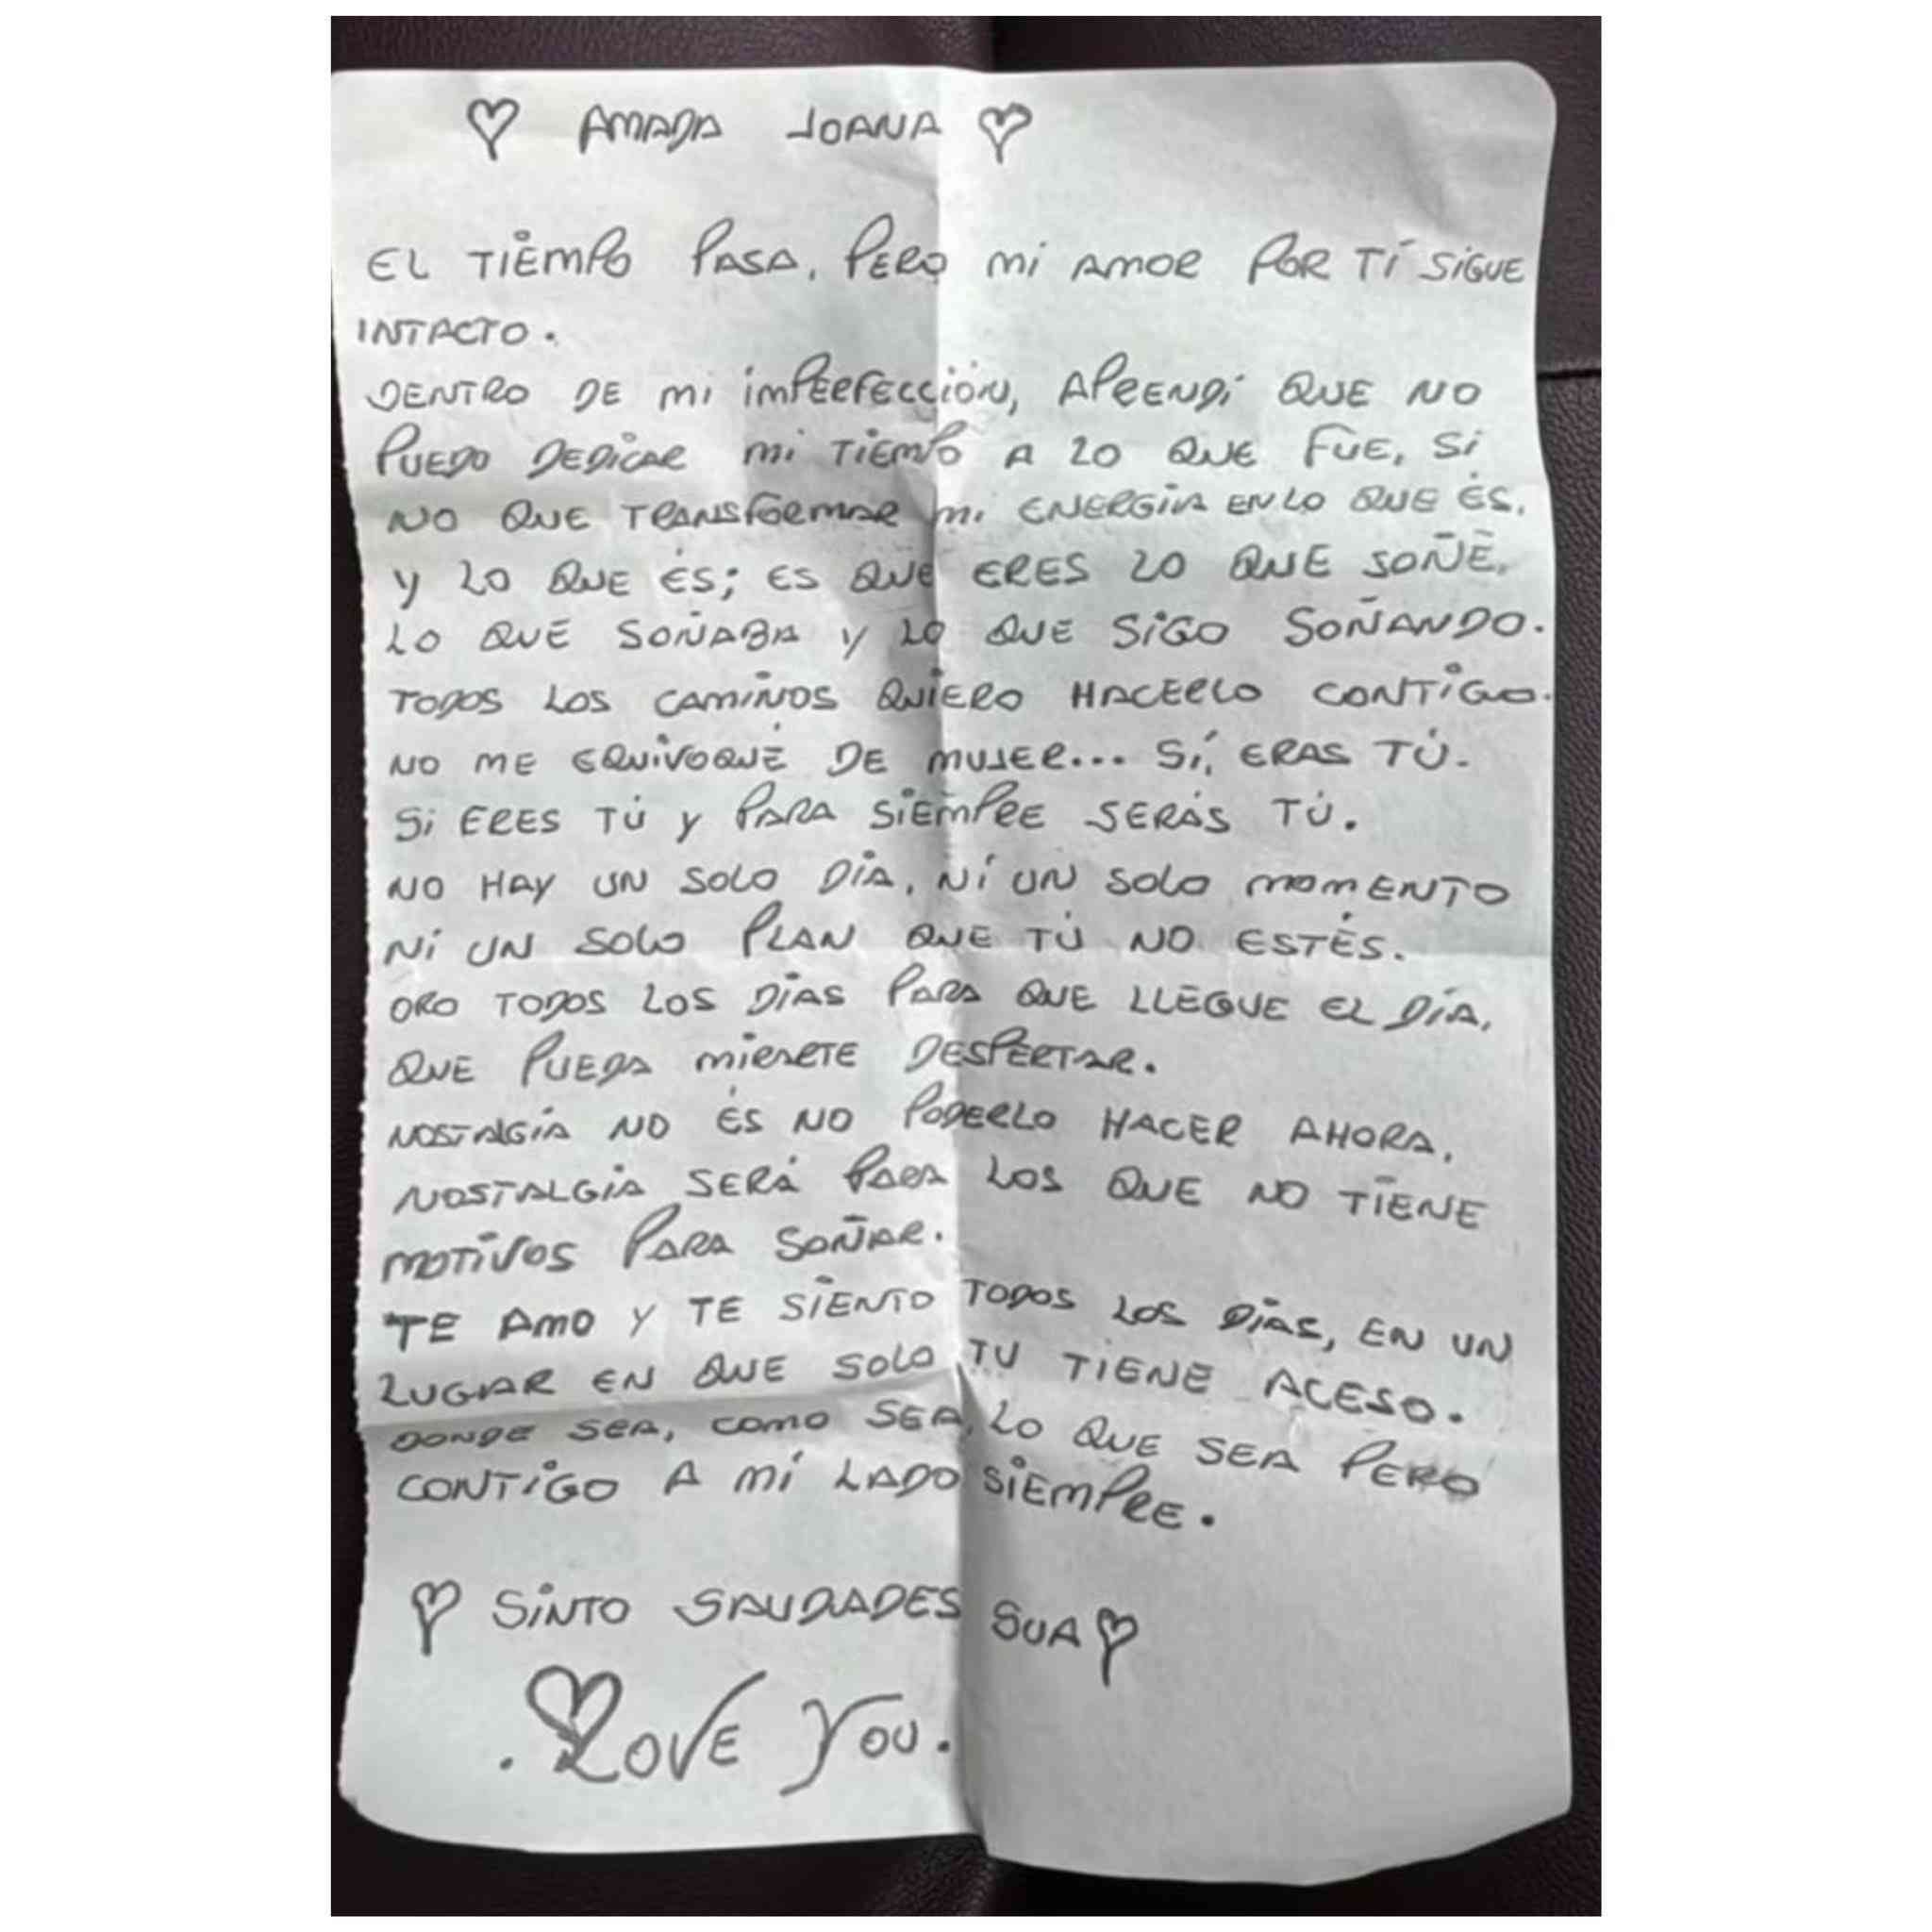 ♡ AMADA JOANA ♡
EL TIEMPO PASA, PERO MI AMOR POR TÍ SIGUE
INTACTO.
DENTRO DE MI IMPERFECCIÓN, APRENDÍ QUE NO
PUEDO DEDICAR MI TIEMPO A LO QUE FUE, SI
NO QUE TRANSFORMAR MI ENERGÍA EN LO QUE ÉS,
Y LO QUE ÉS; ES QUE ERES LO QUE SOÑÉ,
LO QUE SOÑABA Y LO QUE SIGO SOÑANDO.
TODOS LOS CAMINOS QUIERO HACERLO CONTIGO.
NO ME EQUIVOQUÉ DE MUJER... SÍ, ERAS TÚ.
SI ERES TÚ Y PARA SIEMPRE SERÁS TÚ.
NO HAY UN SOLO DÍA, NÍ UN SOLO MOMENTO
NI UN SOLO PLAN QUE TÚ NO ESTÉS.
ORO TODOS LOS DÍAS PARA QUE LLEGUE EL DÍA,
QUE PUEDA MIRARTE DESPERTAR.
NOSTALGÍA NO ÉS NO PODERLO HACER AHORA,
NOSTALGÍA SERÁ PARA LOS QUE NO TIENE
MOTIVOS PARA SOÑAR.
TE AMO Y TE SIENTO TODOS LOS DÍAS, EN UN
LUGAR EN QUE SOLO TU TIENE ACESO.
DONDE SEA, COMO SEA, LO QUE SEA PERO
CONTIGO A MÍ LADO SIEMPRE.
♡ SINTO SAUDADES SUA ♡
. LOVE YOU.